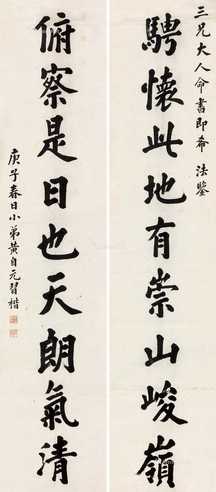 三兄大人命書即希 法鑒
騁懷此地有崇山峻嶺
俯察是日也天朗氣清
庚子春日小弟黃自元習楷